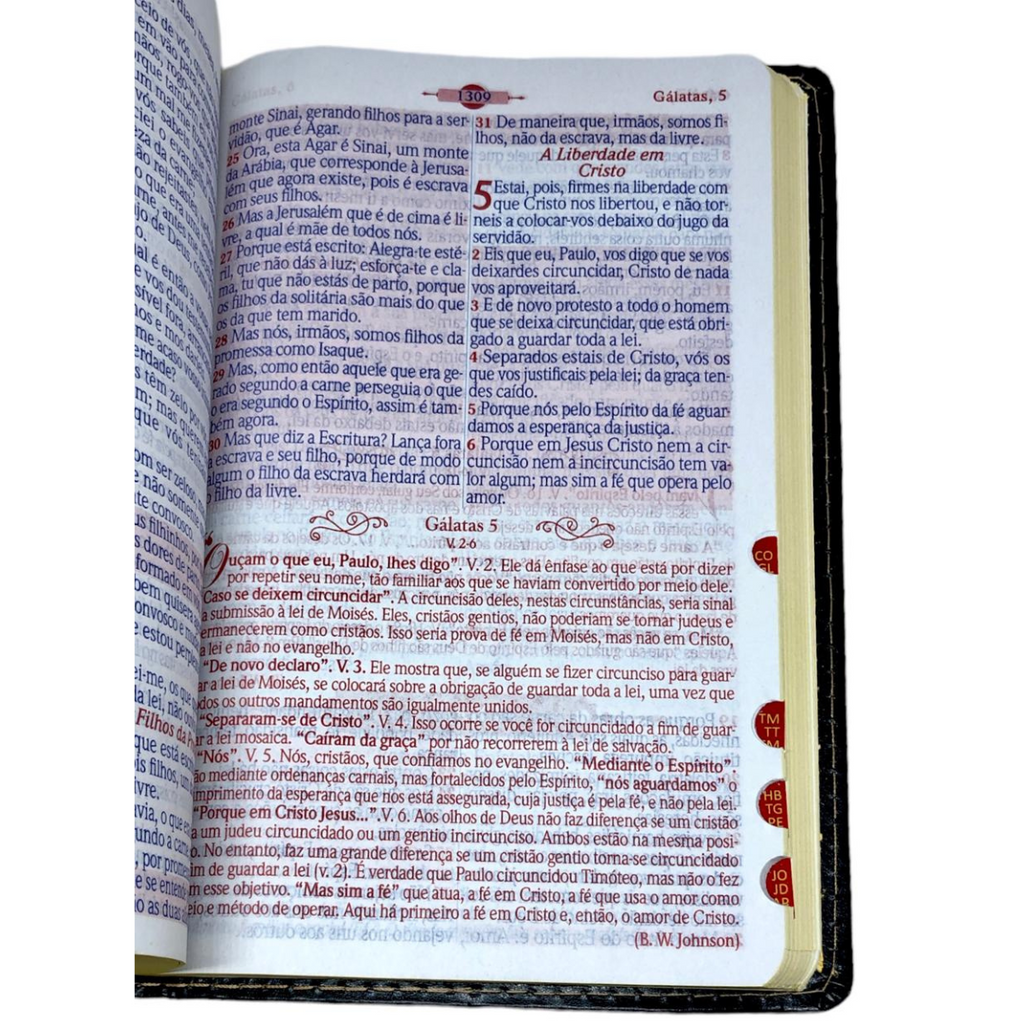 1309
Gálatas, 5
monte Sinai, gerando filhos para a ser-
vidão, que é Agar.
25 Ora, esta Agar é Sinai, um monte
da Arábia, que corresponde à Jerusa-
lém que agora existe, pois é escrava
com seus filhos.
26 Mas a Jerusalém que é de cima é li-
vre, a qual é mãe de todos nós.
27 Porque está escrito: Alegra-te esté-
ril, que não dás à luz; esforça-te e cla-
ma, tu que não estás de parto, porque
os filhos da solitária são mais do que
os da que tem marido.
28 Mas nós, irmãos, somos filhos da
promessa como Isaque.
29 Mas, como então aquele que era ge-
rado segundo a carne perseguia o que
o era segundo o Espírito, assim é tam-
bém agora.
30 Mas que diz a Escritura? Lança fora
a escrava e seu filho, porque de modo
algum o filho da escrava herdará com
o filho da livre.
31 De maneira que, irmãos, somos fi-
lhos, não da escrava, mas da livre.
A Liberdade em
Cristo
5 Estai, pois, firmes na liberdade com
que Cristo nos libertou, e não tor-
neis a colocar-vos debaixo do jugo da
servidão.
2 Eis que eu, Paulo, vos digo que se vos
deixardes circuncidar, Cristo de nada
vos aproveitará.
3 E de novo protesto a todo o homem
que se deixa circuncidar, que está obri-
gado a guardar toda a lei.
4 Separados estais de Cristo, vós os
que vos justificais pela lei; da graça ten-
des caído.
5 Porque nós pelo Espírito da fé aguar-
damos a esperança da justiça.
6 Porque em Jesus Cristo nem a cir-
cuncisão nem a incircuncisão tem va-
lor algum; mas sim a fé que opera pelo
amor.
Gálatas 5
V. 2-6
"Ouçam o que eu, Paulo, lhes digo". V. 2. Ele dá ênfase ao que está por dizer
por repetir seu nome, tão familiar aos que se haviam convertido por meio dele.
"Caso se deixem circuncidar". A circuncisão deles, nestas circunstâncias, seria sinal
a submissão à lei de Moisés. Eles, cristãos gentios, não poderiam se tornar judeus e
ermanecerem como cristãos. Isso seria prova de fé em Moisés, mas não em Cristo,
a lei e não no evangelho.
"De novo declaro". V. 3. Ele mostra que, se alguém se fizer circunciso para guar-
ar a lei de Moisés, se colocará sobre a obrigação de guardar toda a lei, uma vez que
dos os outros mandamentos são igualmente unidos.
"Separaram-se de Cristo". V. 4. Isso ocorre se você for circuncidado a fim de guar-
ar a lei mosaica. "Caíram da graça" por não recorrerem à lei de salvação.
"Nós". V. 5. Nós, cristãos, que confiamos no evangelho. "Mediante o Espírito"
ão mediante ordenanças carnais, mas fortalecidos pelo Espírito, "nós aguardamos" o
mprimento da esperança que nos está assegurada, cuja justiça é pela fé, e não pela lei.
"Porque em Cristo Jesus...". V. 6. Aos olhos de Deus não faz diferença se um cristão
a um judeu circuncidado ou um gentio incircunciso. Ambos estão na mesma posi-
o. No entanto, faz uma grande diferença se um cristão gentio torna-se circuncidado
im de guardar a lei (v. 2). É verdade que Paulo circuncidou Timóteo, mas não o fez
m esse objetivo. "Mas sim a fé" que atua, a fé em Cristo, a fé que usa o amor como
eio e método de operar. Aqui há primeiro a fé em Cristo e, então, o amor de Cristo.
(B. W. Johnson)
CO
TM
TT
HB
TG
JO
JD